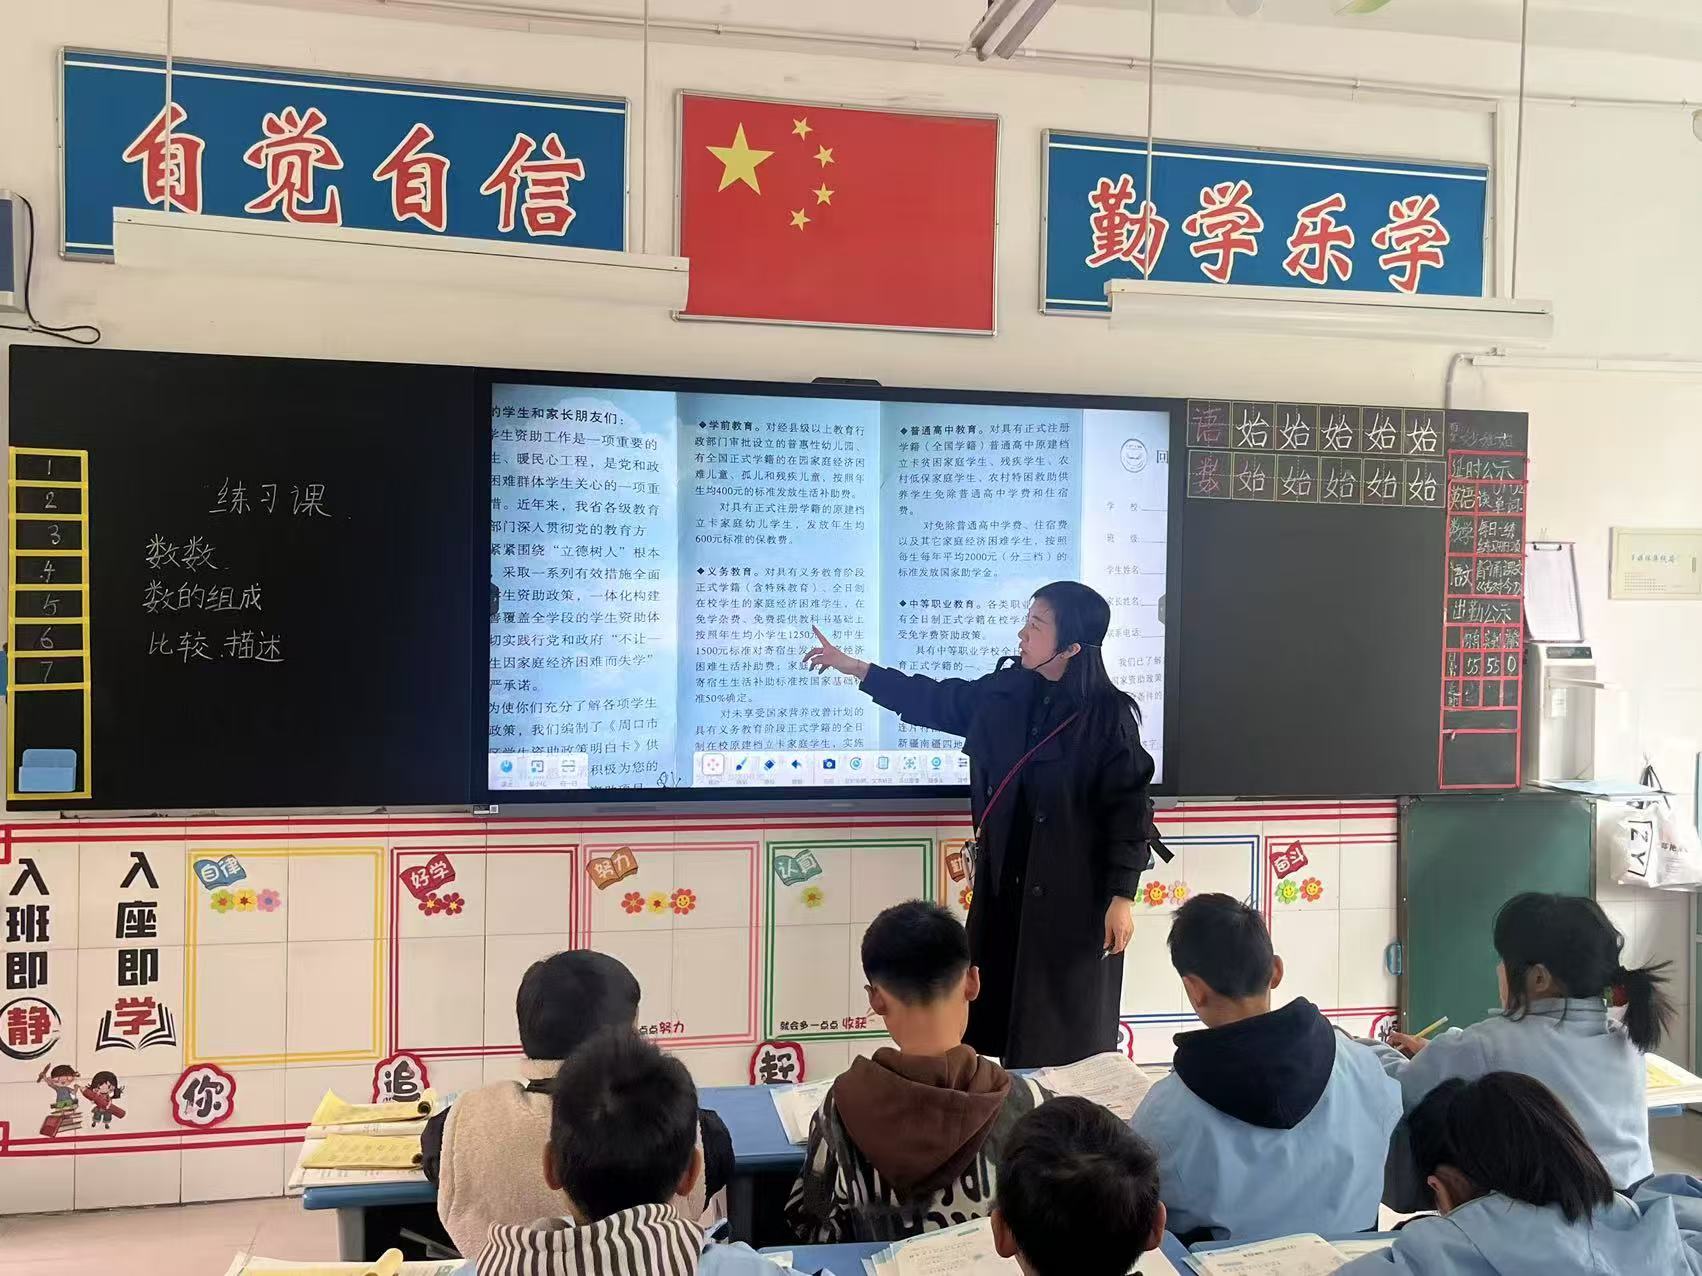 自觉自信
勤学乐学
练习课
数数
数的组成
比较.描述
1
2
3
4
5
6
7
的学生和家长朋友们：
学生资助工作是一项重要的
生、暖民心工程，是党和政
困难群体学生关心的一项重
措。近年来，我省各级教育
部门深入贯彻党的教育方
紧紧围绕“立德树人”根本
，采取一系列有效措施全面
学生资助政策，一体化构建
善覆盖全学段的学生资助体
切实践行党和政府“不让一
生因家庭经济困难而失学”
严承诺。
为使你们充分了解各项学生
政策，我们编制了《周口市
区学生资助政策明白卡》供
积极为您的
◆学前教育。对经县级以上教育行
政部门审批设立的普惠性幼儿园、
有全国正式学籍的在园家庭经济困
难儿童、孤儿和残疾儿童，按照年
生均400元的标准发放生活补助费。
对具有正式注册学籍的原建档
立卡家庭幼儿学生，发放年生均
600元标准的保教费。
◆义务教育。对具有义务教育阶段
正式学籍（含特殊教育）、全日制
在校学生的家庭经济困难学生，在
免学杂费、免费提供教科书基础上
按照年生均小学生1250元、初中生
1500元标准对寄宿生发放家庭经济
困难生活补助费；家庭
寄宿生生活补助标准按国家基础标
准50%确定。
对未享受国家营养改善计划的
具有义务教育阶段正式学籍的全日
制在校原建档立卡家庭学生，实施
◆普通高中教育。对具有正式注册
学籍（全国学籍）普通高中原建档
立卡贫困家庭学生、残疾学生、农
村低保家庭学生、农村特困救助供
养学生免除普通高中学费和住宿
费。
对免除普通高中学费、住宿费
以及其它家庭经济困难学生，按照
每生每年平均2000元（分三档）的
标准发放国家助学金。
◆中等职业教育。各类职业
有全日制正式学籍在校学
受免学费资助政策。
具有中等职业学校全日
育正式学籍的一、二
新疆南疆四地
回
学 校
班 级
学生姓名
家长姓名
联系电话
我们已了解
国家资助政策
语 始 始 始 始 始
数 始 始 始 始 始
延时公示
英语
单词
数学 每日一练
语文 背诵课文
出勤公示
55 55 0
入班即静
入座即学
自律
好学
努力
认真
勤
奋斗
点点努力
就会多一点点 收获
你
追
赶